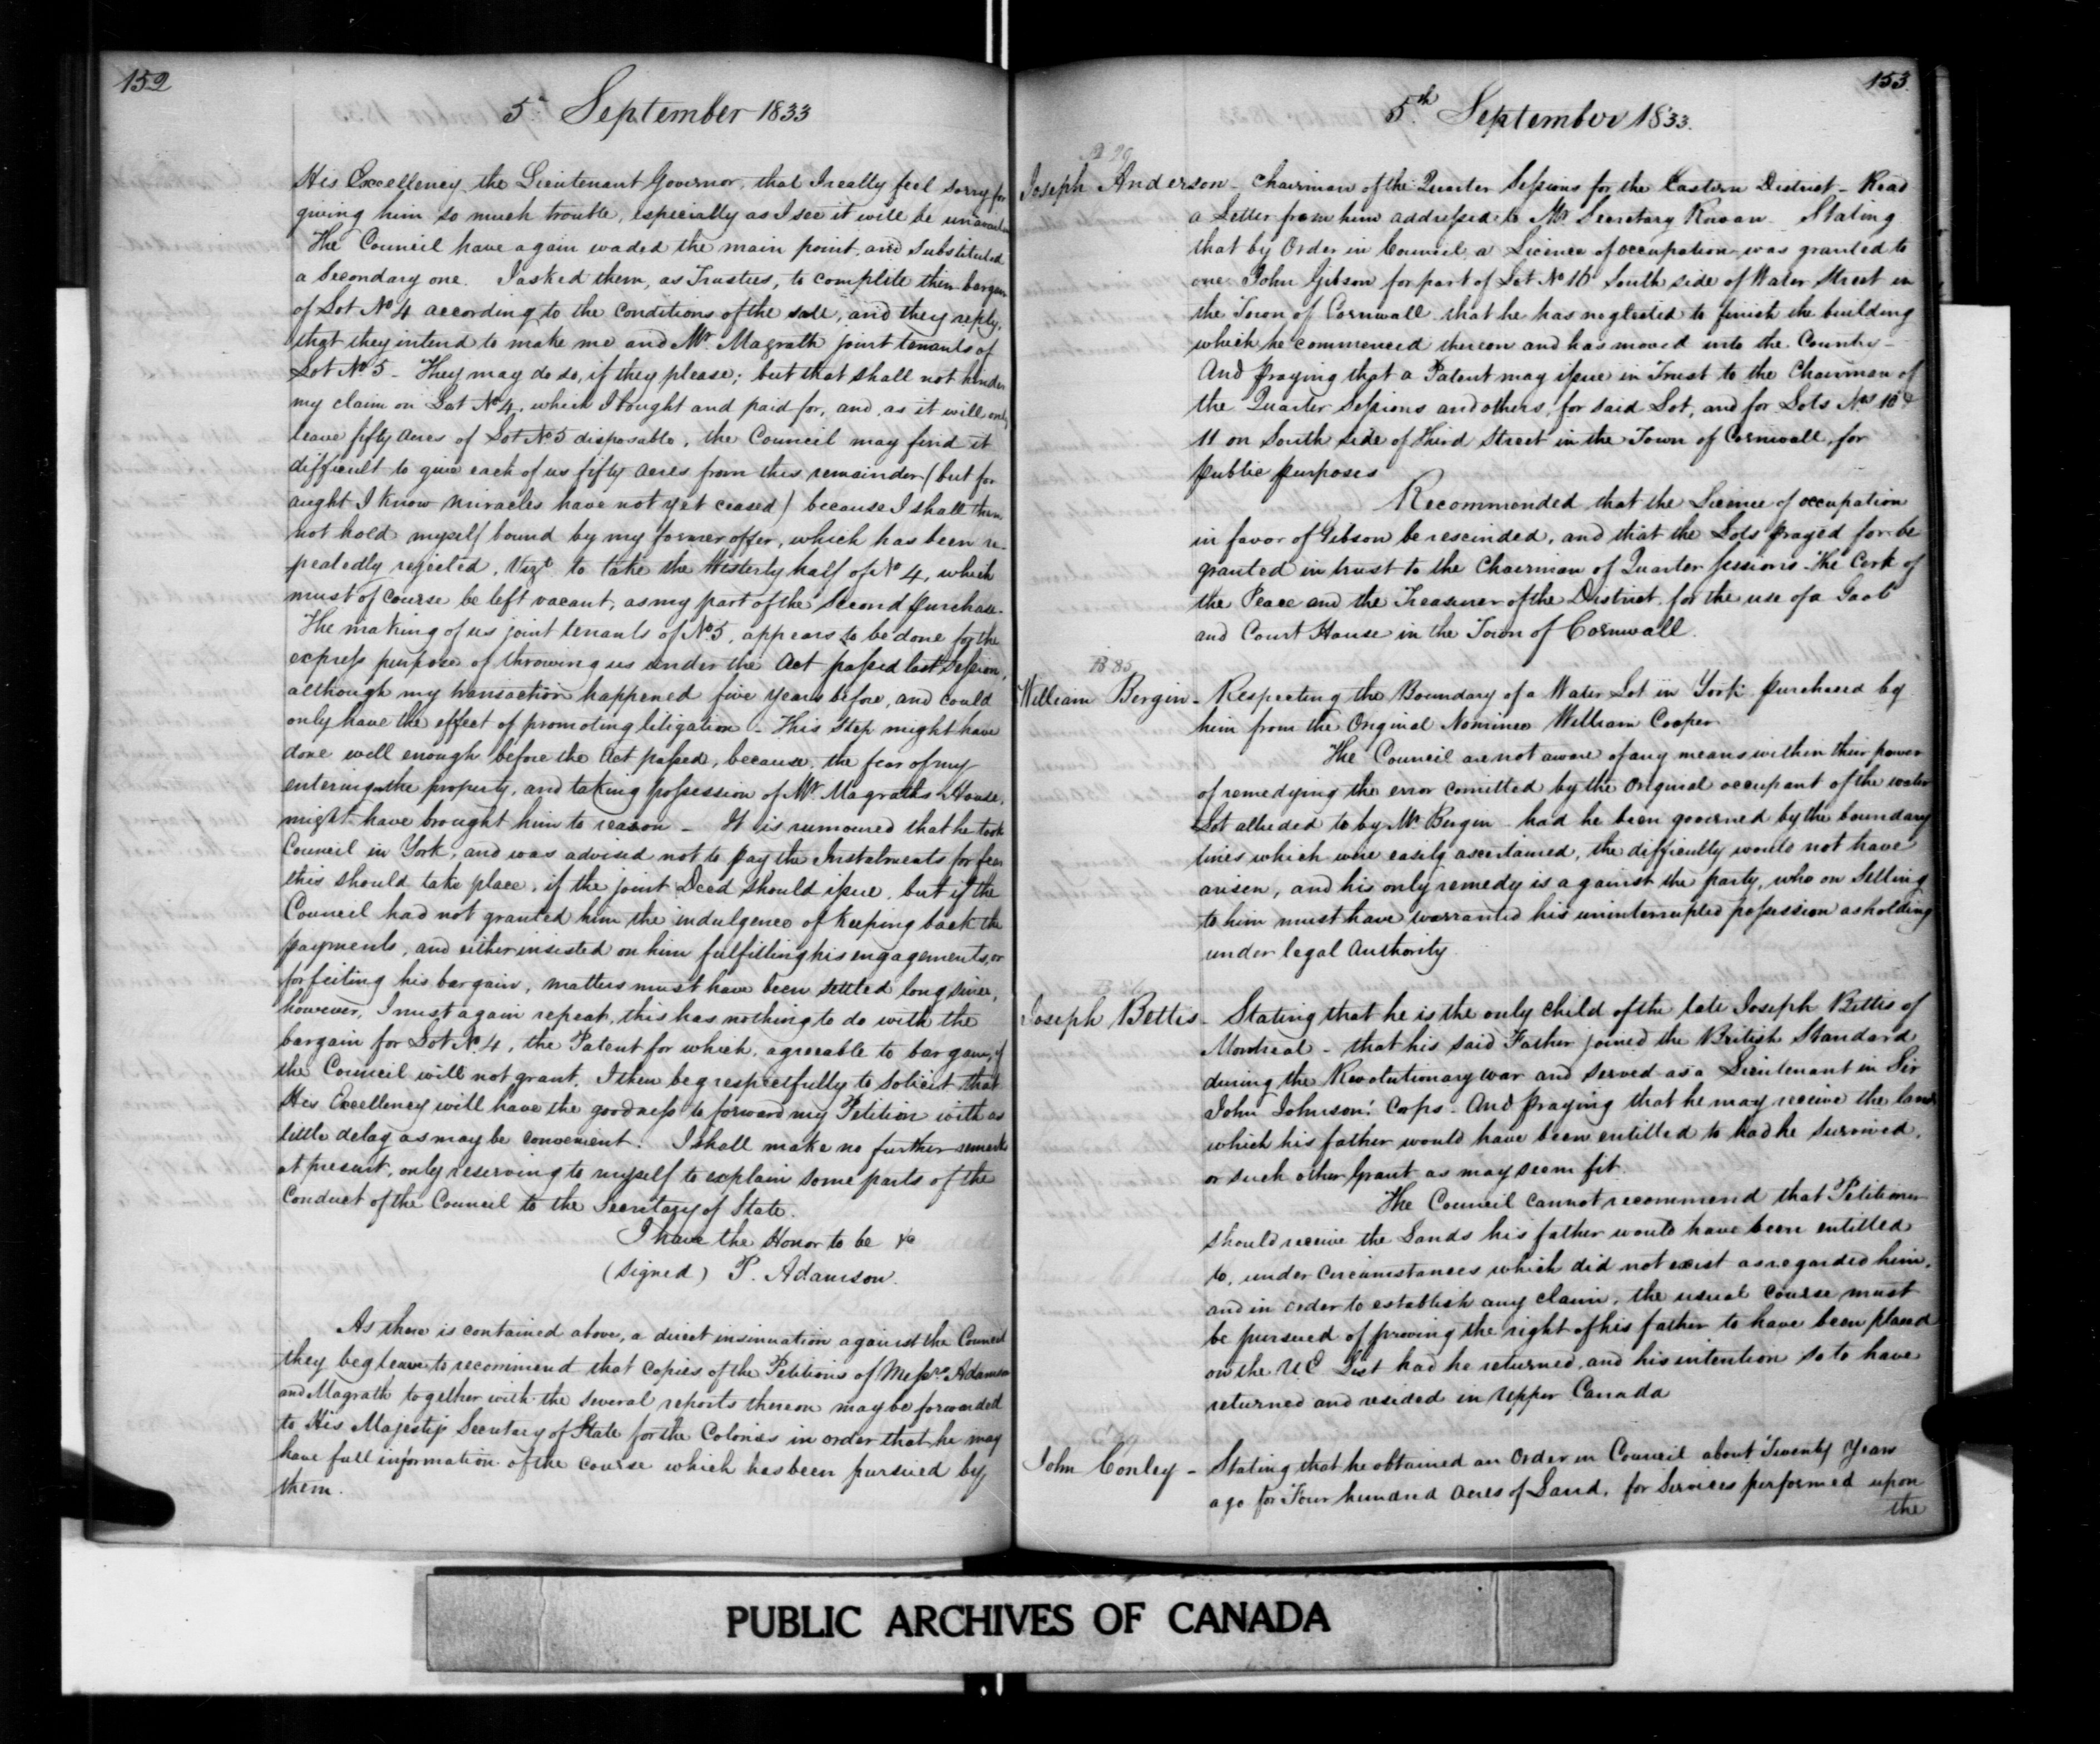 152
5th September 1833
His Excellency the Lieutenant Governor, that I really feel sorry for
giving him so much trouble, especially as I see it will be
The Council have again waded the main point, and Substituted
a Secondary one. I asked them, as Trustees, to complete their bargain
of Lot No 4 according to the Conditions of the sale, and they reply,
that they intend to make me and Mr. Magrath joint tenants of
Lot No 5 - They may do so, if they please; but that shall not hinder
my claim on Lot No 4, which I bought and paid for, and, as it will only
leave fifty Acres of Lot No 5 disposable, the Council may find it
difficult to give each of us fifty acres from this remainder (but for
aught I know miracles have not yet ceased) because I shall then
not hold myself bound by my former offer, which has been re-
peatedly rejected, Vizt to take the Westerly half of No 4, which
must of course be left vacant, as my part of the Second purchase.
The making of us joint tenants of No 5, appears to be done for the
express purpose of throwing us under the Act passed last Session,
although my transaction happened five years before, and could
only have the effect of promoting litigation - This step might have
done well enough before the Act passed, because, the fear of my
entering the property, and taking possession of Mr Magraths House,
might have brought him to reason - It is rumoured that he took
Council in York, and was advised not to pay the Instalments for fear
this should take place, if the joint Deed should issue, but if the
Council had not granted him the indulgence of keeping back the
payments, and either insisted on him fulfilling his engagements, or
forfeiting his bargain, matters must have been settled long since,
however, I must again repeat, this has nothing to do with the
bargain for Lot No. 4, the Patent for which, agreeable to bargain, if
the Council will not grant, I then beg respectfully to solicit that
His Excellency will have the goodness to forward my Petition with as
little delay as may be convenient. I shall make no further remark
at present, only reserving to myself to explain some parts of the
Conduct of the Council to the Secretary of State.
I have the Honor to be &c
(signed) P. Adamson.
As there is contained above, a direct insinuation against the Council
they beg leave to recommend that Copies of the Petitions of Messrs Adamson
and Magrath together with the several reports thereon may be forwarded
to His Majestys Secretary of State for the Colonies in order that he may
have full information of the course which has been pursued by
them.
153
5th September 1833.
A 29
Joseph Anderson - Chairman of the Quarter Sessions for the Eastern District - Read
a Letter from him addressed to Mr Secretary Rowan Stating
that by Order in Council a Licence of occupation was granted to
one John Gibson for part of Lot No 16 South side of Water Street in
the Town of Cornwall that he has neglected to finish the building
which he commenced thereon and has moved into the Country -
And Praying that a Patent may issue in Trust to the Chairman of
the Quarter Sessions and others, for said Lot, and for Lots Nos 10 &
11 on South side of Third Street in the Town of Cornwall for
public purposes
Recommended that the Licence of occupation
in favor of Gibson be rescinded, and that the Lots prayed for be
granted in trust to the Chairman of Quarter sessions The Cerk of
the Peace and the Treasurer of the District for the use of a Gaol
and Court House in the Town of Cornwall.
B 85
William Bergin - Respecting the Boundary of a Water Lot in York purchased by
him from the Original Nominee William Cooper
The Council are not aware of any means within their power
of remedying the error comitted by the Original occupant of the water
Lot alluded to by Mr Bergin had he been governed by the boundary
lines which were easily ascertained, the difficulty would not have
arisen, and his only remedy is against the party, who on Selling
to him must have warranted his uninterrupted possession as holding
under legal Authority
Joseph Bettis - Stating that he is the only child of the late Joseph Bettis of
Montreal - that his said Father joined the British Standard
during the Revolutionary War and served as a Lieutenant in Sir
John Johnson's Corps - And Praying that he may receive the land
which his father would have been entitled to had he survived,
or such other Grant as may seem fit.
The Council cannot recommend that Petitioner
should receive the Lands his father would have been entitled
to, under circumstances which did not exist as regarded him,
and in order to establish any claim, the usual course must
be pursued of proving the right of his father to have been placed
on the UE List had he returned, and his intention so to have
returned and resided in Upper Canada
John Conley - Stating that he obtained an Order in Council about Twenty Years
ago for Four hundred Acres of Land, for Services performed upon
the
PUBLIC ARCHIVES OF CANADA